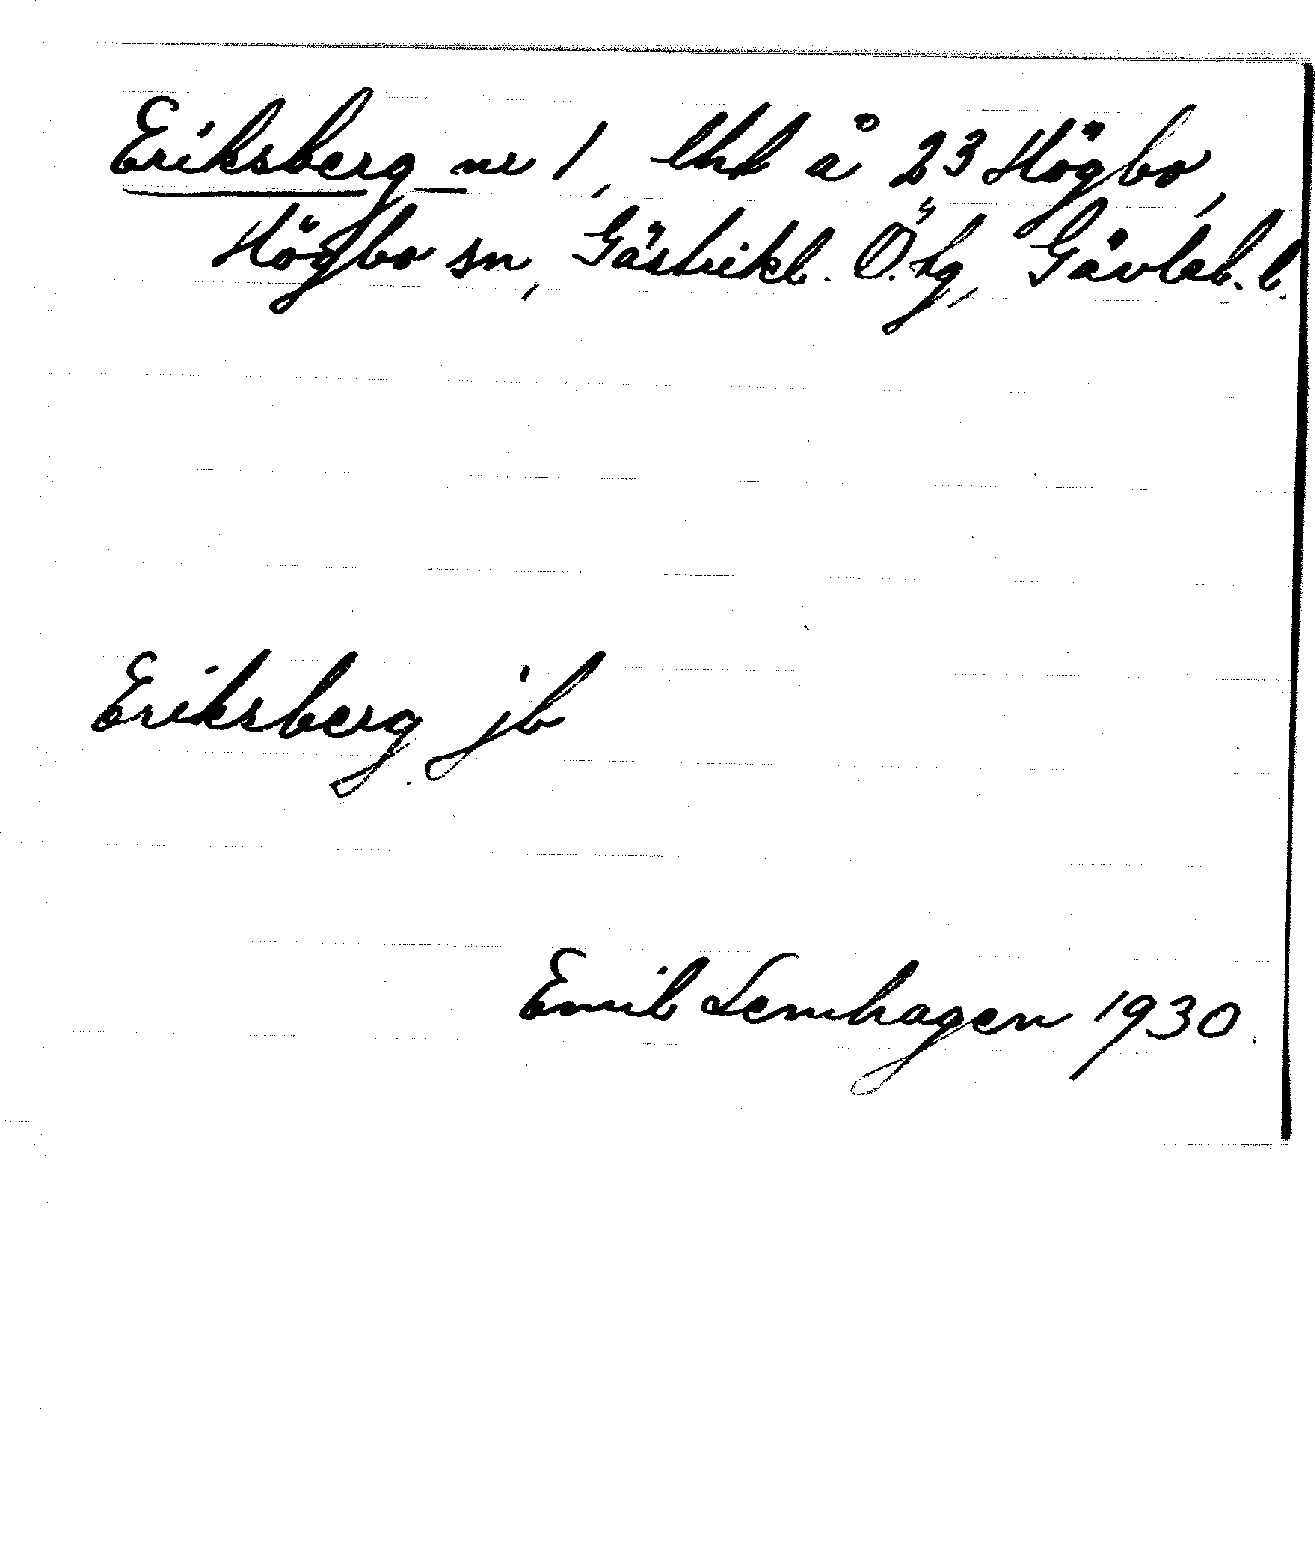 Eriksberg nr 1, lht å 23 Högbo,
Högbo sn, Gästrikl. Ö. tg, Gävleb. l.
Eriksberg jb
Emil Lemhagen 1930.